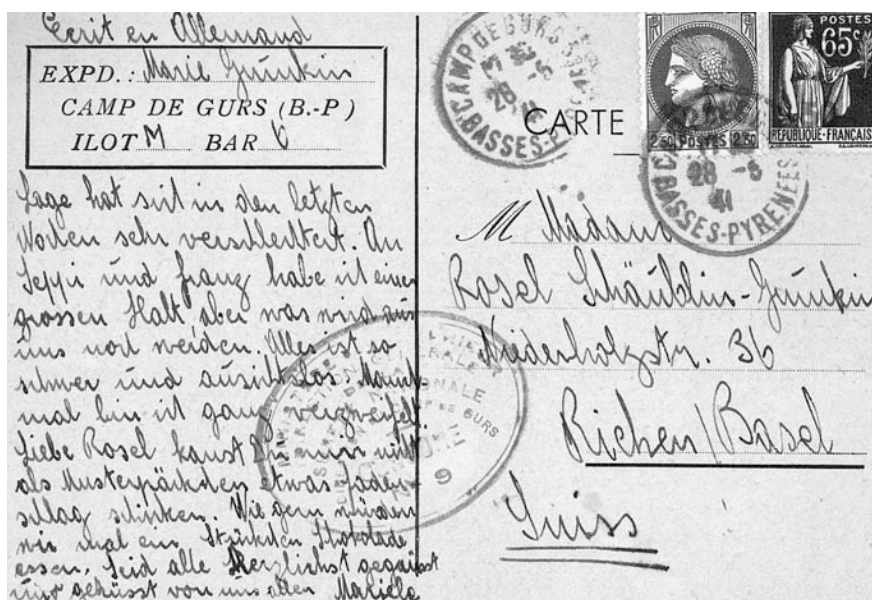 Ecrit en Allemand
EXPD.: Marie Grunkin
CAMP DE GURS (B.-P)
ILOT M BAR 6
Lage hat sich in den letzten
Wochen sehr verschlechtert. An
Seppi und Franz habe ich einen
grossen Halt aber was wird aus
uns noch werden. Alles ist so
schwer und aussichtslos. Manch-
mal bin ich ganz verzweifelt
Liebe Rosel kanst Du mir nicht
als Musterpäckchen etwas Faden
schlag schicken. Wie gern würden
wir mal ein Stückchen Schokolade
essen. Seid alle Herzlichst gegrüsst
und geküsst von uns allen Mariele
CAMP DE GURS
BASSES-P
CARTE
2.50 POSTES 2.50
POSTES
65c
REPUBLIQUE-FRANÇAISE
28 -5
41
BASSES-PYRENEES
M Madame
Rosel Schäublin-Grunkin
Niederholzstr. 36
Riehen/Basel
Suiss
GURS